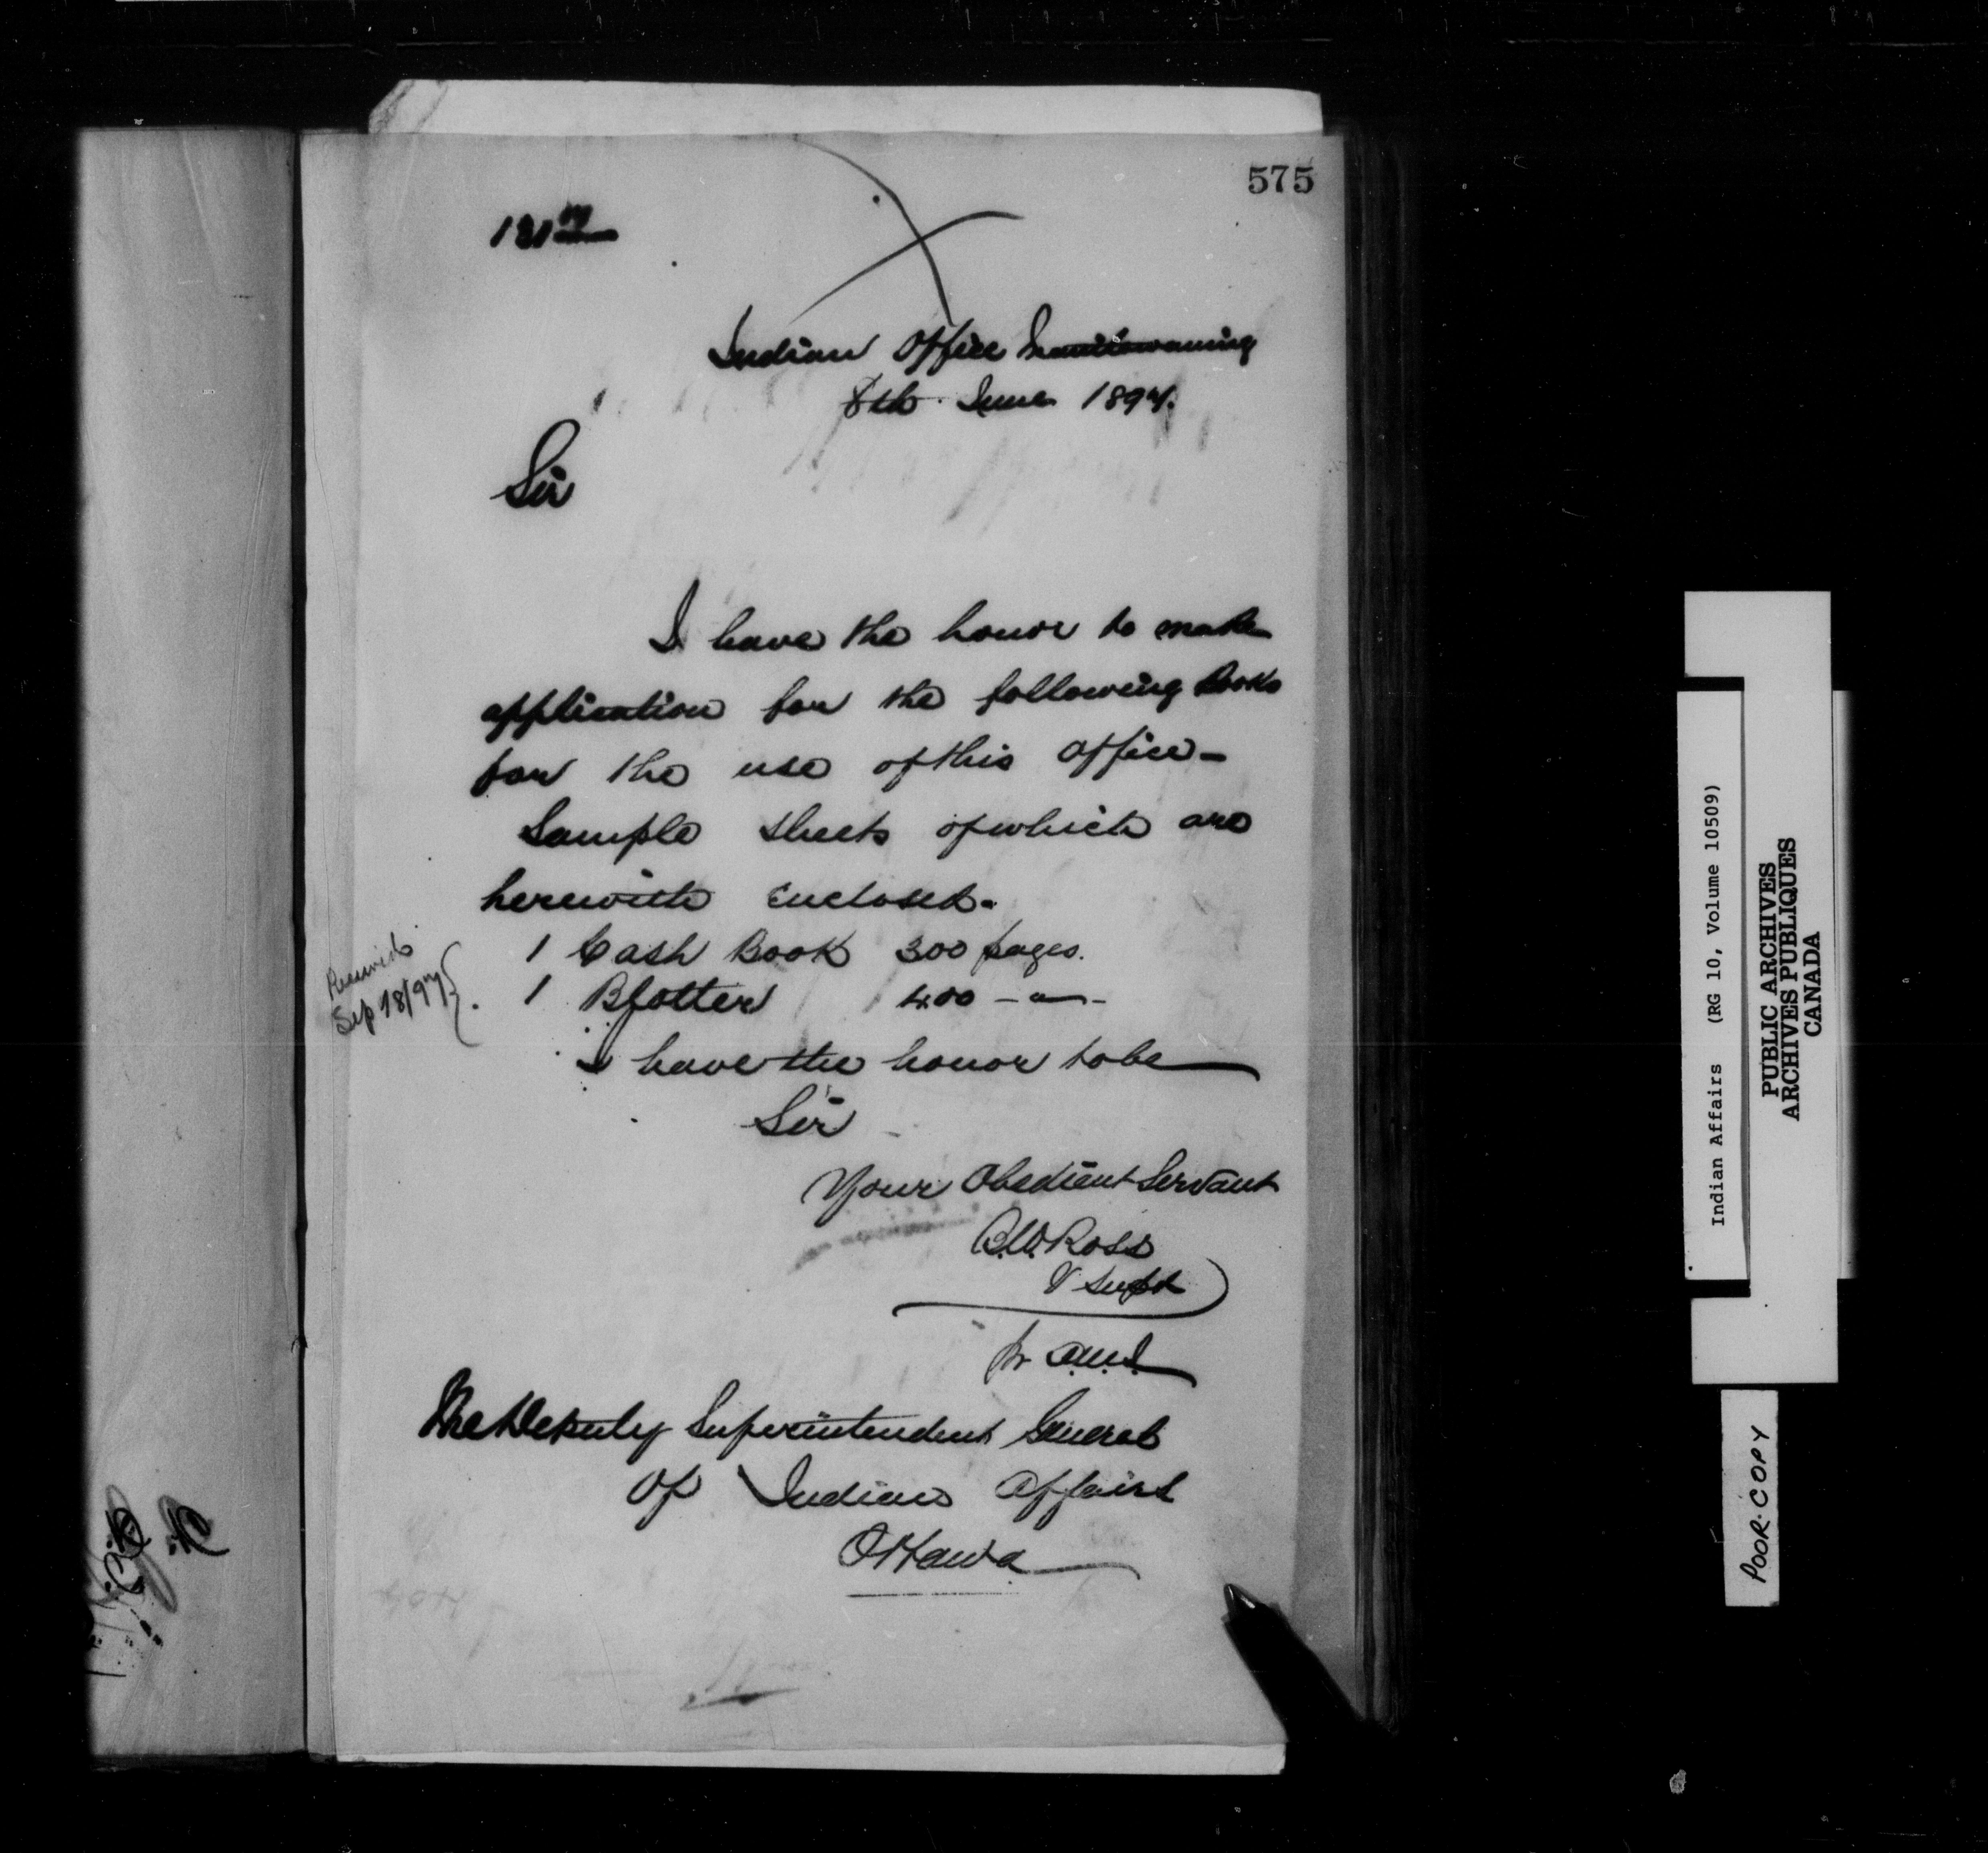 575
Indian Office Manitowaning
8th June 1897.
Sir
I have the honor to make
application for the following Books
for the use of this office -
Sample sheets of which are
herewith Enclosed.
Received
Sep 18/97
1 Cash Book 300 pages.
1 Blotter 400 - " -
I have the honor to be
Sir
Your Obedient Servant
B.W. Ross
V Supt
The Deputy Superintendent General
Of Indian Affairs
Ottawa
Indian Affairs (RG 10, Volume 10509)
PUBLIC ARCHIVES
ARCHIVES PUBLIQUES
CANADA
POOR COPY